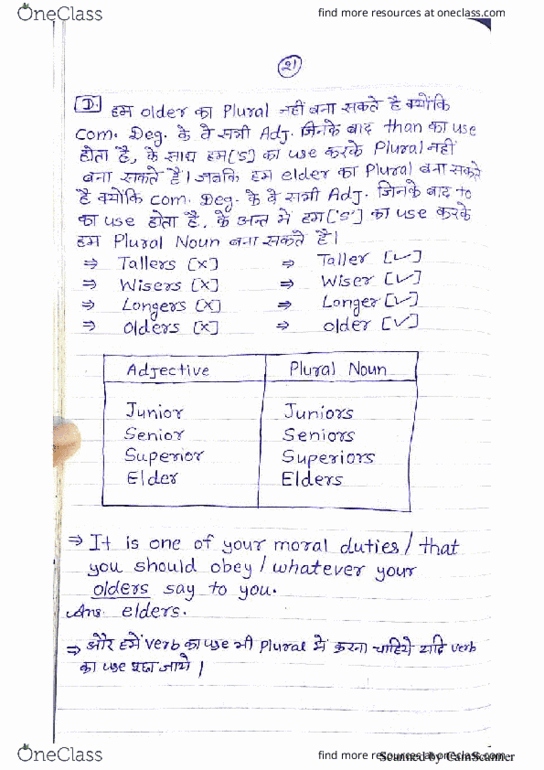 OneClass
find more resources at oneclass.com
21
D. हम older का Plural नहीं बना सकते है क्योंकि
Com. Deg. के वे सभी Adj. जिनके बाद than का use
होता है, के साथ हम['s'] का use करके Plural नहीं
बना सकते है। जबकि हम elder का Plural बना सकते
है क्योंकि com. Deg. के वे सभी Adj. जिनके बाद to
का use होता है, के अन्त में हम['s'] का use करके
हम Plural Noun बना सकते है।
⇒ Tallers [x] ⇒ Taller [✓]
⇒ Wisers [x] ⇒ Wiser [✓]
⇒ Longers [x] ⇒ Longer [✓]
⇒ olders [x] ⇒ older [✓]
Adjective Plural Noun
Junior Juniors
Senior Seniors
Superior Superiors
Elder Elders
⇒ It is one of your moral duties / that
you should obey / whatever your
olders say to you.
Ans. elders.
⇒ और हमें verb का use भी Plural में करना चाहिये यदि verb
का use पूछा जाये।
OneClass
find more resources at oneclass.com
Scanned by CamScanner